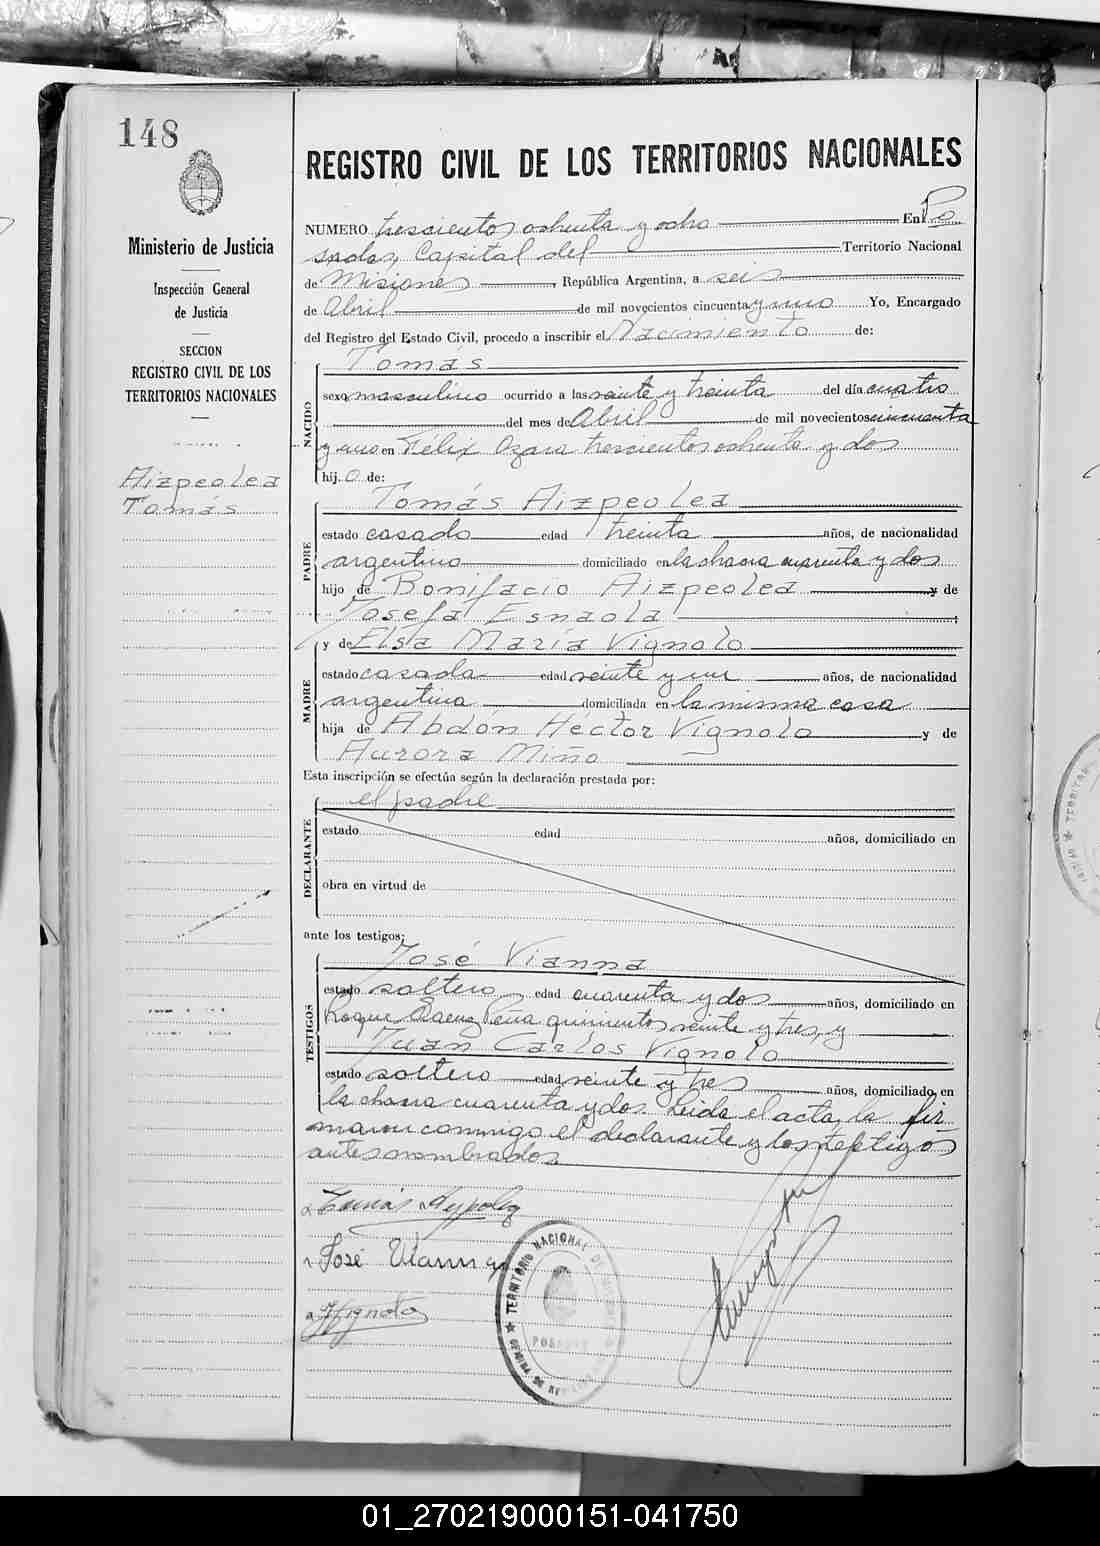 148
REGISTRO CIVIL DE LOS TERRITORIOS NACIONALES
Ministerio de Justicia
Inspección General
de Justicia
SECCION
REGISTRO CIVIL DE LOS
TERRITORIOS NACIONALES
Aizpeolea
Tomás
NUMERO trescientos ochenta y ocho En Po
sadas, Capital del Territorio Nacional
de Misiones, República Argentina, a seis
de Abril de mil novecientos cincuenta y uno Yo, Encargado
del Registro del Estado Civil, procedo a inscribir el Nacimiento de:
NACIDO
Tomás
sexo masculino ocurrido a las veinte y treinta del día cuatro
del mes de Abril de mil novecientos cincuenta
y uno en Félix Azara trescientos ochenta y dos
hijo de:
PADRE
Tomás Aizpeolea
estado casado edad treinta años, de nacionalidad
argentino domiciliado en la chacra cuarenta y dos
hijo de Bonifacio Aizpeolea y de
Josefa Esnaola
MADRE
y de Elsa María Vignolo
estado casada edad veinte y un años, de nacionalidad
argentina domiciliada en la misma casa
hija de Abdón Héctor Vignolo y de
Aurora Miño
Esta inscripción se efectúa según la declaración prestada por:
DECLARANTE
el padre
estado edad años, domiciliado en
obra en virtud de
ante los testigos:
TESTIGOS
José Vianna
estado soltero edad cuarenta y dos años, domiciliado en
Roque Saenz Peña quinientos veinte y tres, y
Juan Carlos Vignolo
estado soltero edad veinte y tres años, domiciliado en
la chacra cuarenta y dos. Leida el acta, la fir-
maron conmigo el declarante y los testigos
antes nombrados.
Tomás Aizpolea
José Vianna
JVignolo
TERRITORIO NACIONAL DE MISIONES
POSADAS
01_270219000151-041750